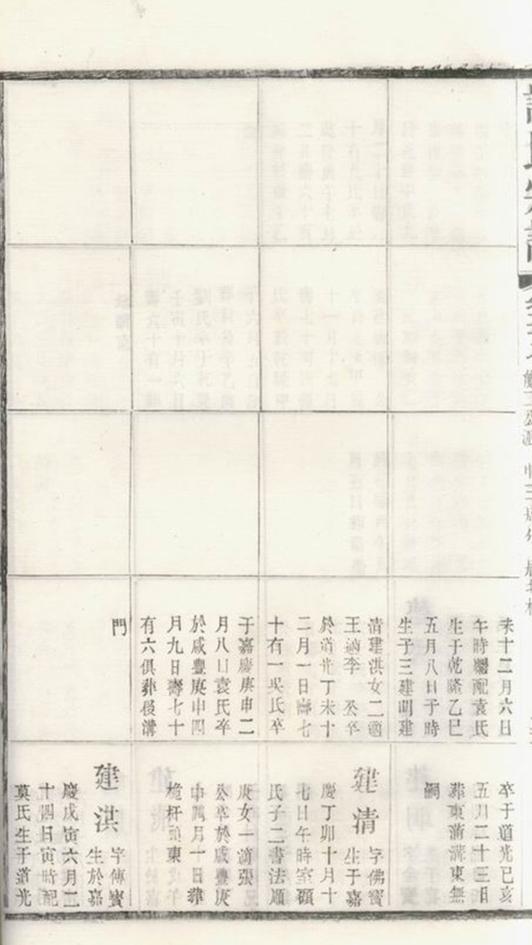 未十二月六日
午時繼配袁氏
生于乾隆乙巳
五月八日子時
生子三建明建
清建洪女二適
王適李 公卒
於道光丁未十
二月一日壽七
十有一吳氏卒
于嘉慶庚申二
月八日袁氏卒
於咸豐庚申四
月九日壽七十
有六俱葬後溝
門
卒于道光己亥
五月二十三日
葬東蒲溝東無
嗣
建清 字佛寶
生于嘉
慶丁卯十月十
七日午時室顧
氏子二書法順
庚女一適張
公卒於咸豐庚
申四月十日葬
桅杆頭東
建洪 字傳寶
生於嘉
慶戊寅六月二
十四日寅時配
莫氏生于道光